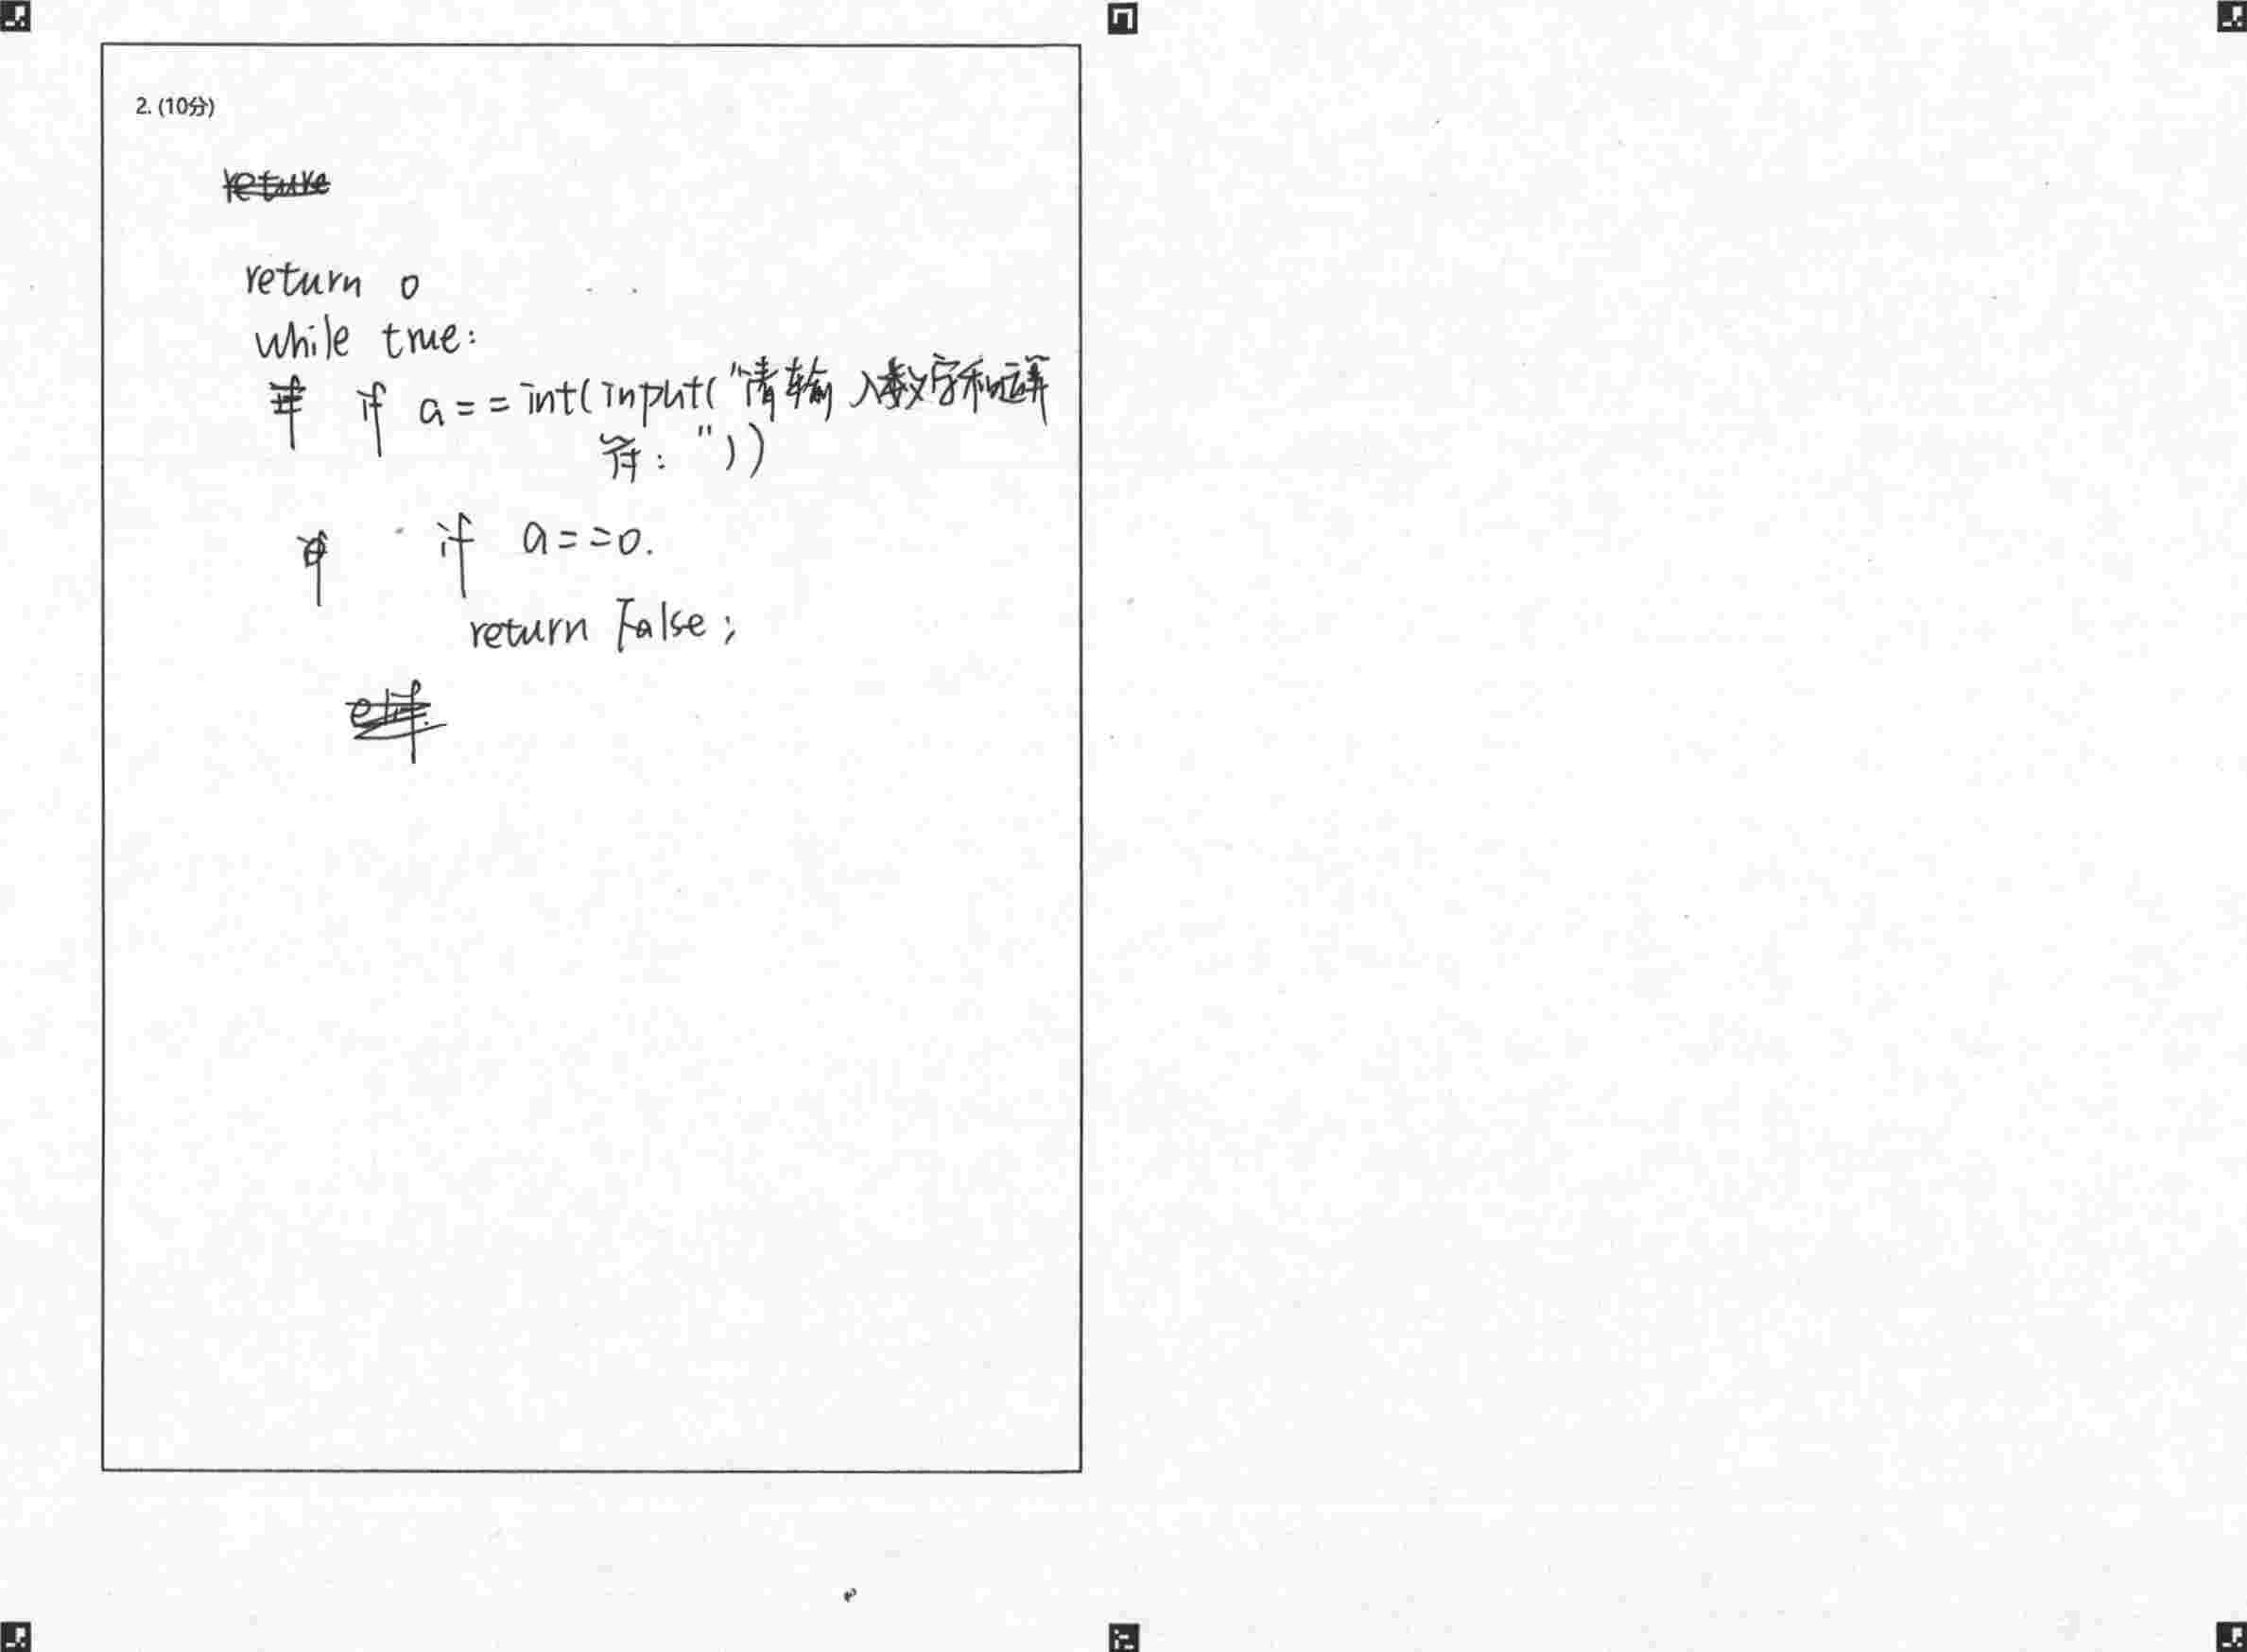 2. (10分)
return 0
while true:
if a==int(input("请输入数字和运算
符:"))
if a==0.
return False;